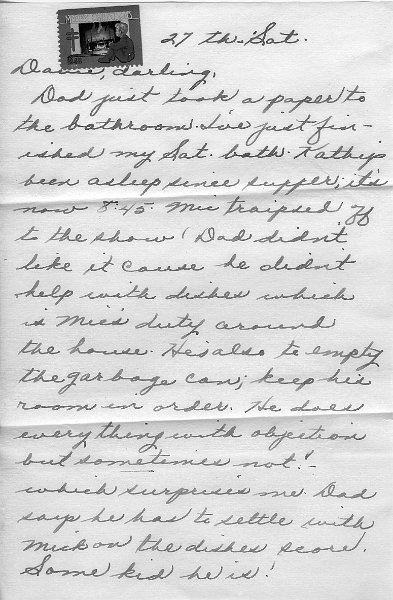 27 th. Sat.
darling,
Dad just took a paper to
the bathroom. I've just fin-
ished my Sat. bath. Kathy's
been asleep since supper, it's
now 8:45. Mic traipsed off
to the show! Dad didn't
like it cause he didn't
help with dishes which
is Mic's duty around
the house. He's also to empty
the garbage can; keep his
room in order. He does
everything with objection
but sometimes not! -
which surprises me. Dad
says he has to settle with
Mick on the dishes score!
Some kid he is!